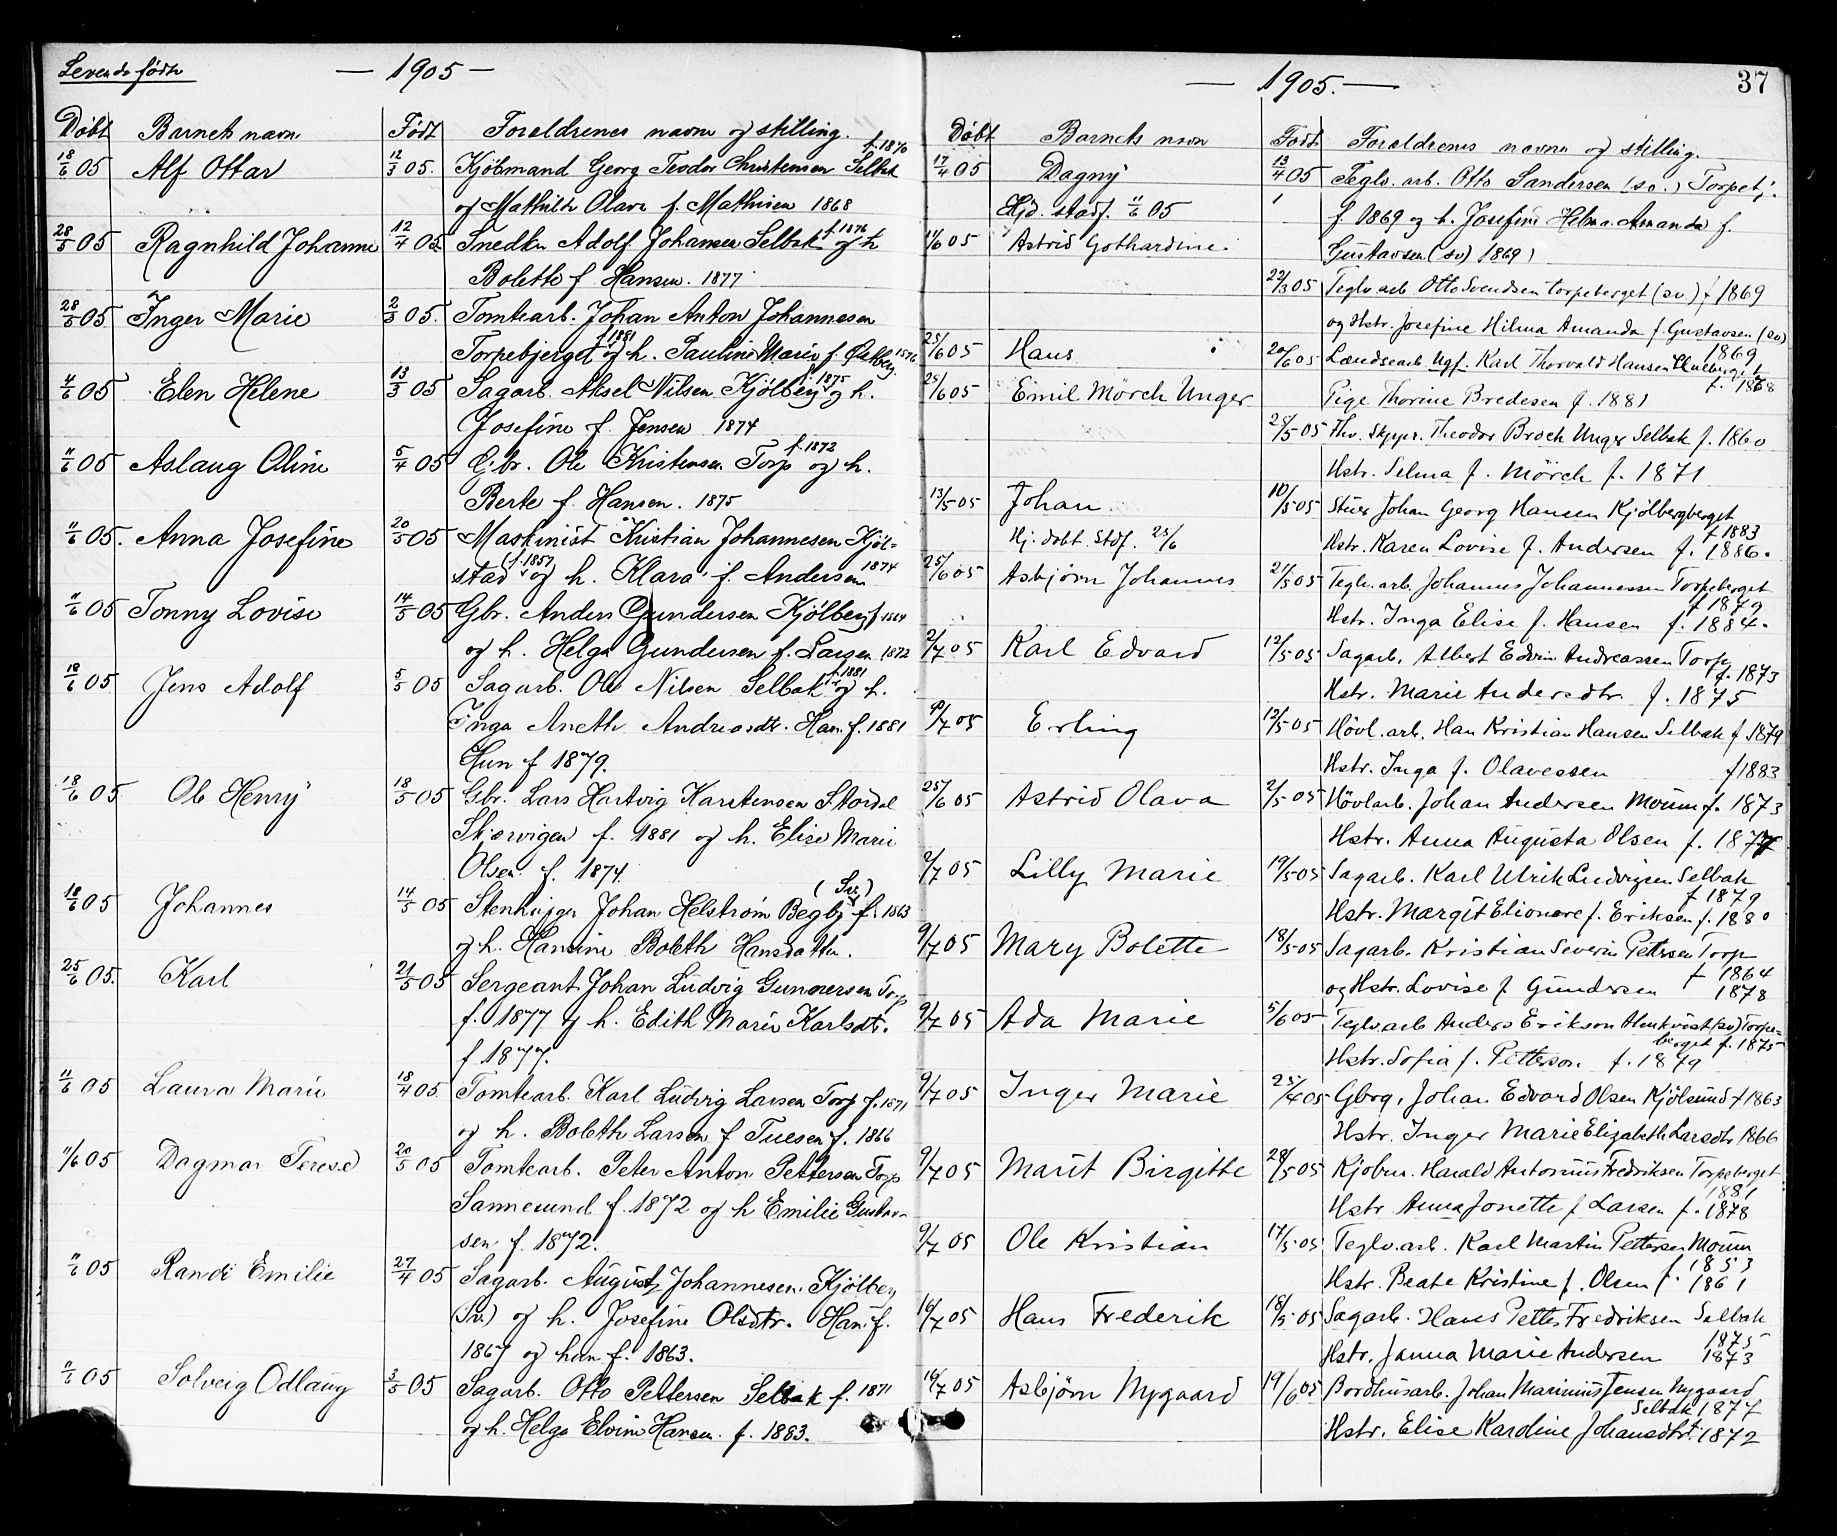 Levende fødte — 1905 —
Døbt Barnets navn Født Foreldrenes navne og stilling.
18/6 05 Alf Ottar 12/3 05. Kjöbmand Georg Teodor Christensen Selbak f. 1870
og Mathilde Olava f. Mathisen 1868
28/5 05 Ragnhild Johanne 12/4 05 Snedker Adolf Johansen Selbak f 1876 og h
Bolette f Hansen. 1877
28/5 05 Inger Marie 2/3 05. Tomtearb. Johan Anton Johannesen
Torpebjerget f 1881 og h. Pauline Marie f. Östberg 1876
4/6 05 Elen Helene 13/3 05 Sagarb. Aksel Nilsen Kjölberg f. 1875 og h.
Josefine f. Jensen 1874
11/6 05 Aslaug Oline 5/4 05 Gbr. Ole Kristensen Torp f. 1872 og h.
Berte f. Hansen. 1875
11/6 05. Anna Josefine 20/5 05 Maskinist Kristian Johannesen Kjöl-
stad f. 1857 og h. Klara f. Andersen 1874
11/6 05 Tonny Lovise 14/5 05 Gbr. Anders Gundersen Kjölberg f. 1864
og h. Helga Gundersen f. Larsen 1872
18/6 05 Jens Adolf 5/5 05 Sagarb. Ole Nilsen Selbak f. 1881 og h.
Inga Aneth Andreasdt. Han f. 1881
Hun f 1879.
18/6 05 Ole Henry 18/5 05 Gbr. Lars Hartvig Karstensen Stordal
Skjærvigen f. 1881 og h. Elise Marie
Olsen f. 1874
18/6 05 Johannes 14/5 05 Stenhugger Johan Helström Begby (Sv.) f. 1863
og h. Hansine Boleth Hansdatter.
25/6 05. Karl 21/5 05 Sergeant Johan Ludvig Gunnersen Torp
f. 1877 og h. Edith Marie Karlsdt.
f 1877.
11/6 05 Laura Marie 18/4 05 Tomtearb. Karl Ludvig Larsen Torp f. 1871
og h. Boleth Larsen f Tuesen f. 1866
11/6 05 Dagmar Terese 20/5 05 Tomtearb. Peter Anton Pettersen Torp
Sannesund f. 1872 og h Emilie Gustav-
sen f. 1872.
11/6 05 Randi Emilie 27/4 05 Sagarb. August Johannesen Kjölberg
(Sv.) og h. Josefine Olsdtr. Han f.
1867 og hun f. 1863.
11/6 05 Solveig Odlaug 3/5 05 Sagarb. Otto Pettersen Selbak f. 1871
og h. Helga Elvine Hansen f. 1883.
— 1905. — 37
Døbt Barnets navn Født Foreldrenes navne og stilling.
17/4 05 Dagny 13/4 05 Teglv. arb. Otto Sandersen (sv.) Torpebj.
Hjd. stadf. 11/6 05 f. 1869 og h. Josefine Helma Amanda f.
11/6 05 Astrid Gothardine. Gustavsen (sv) 1869
22/3 05 Teglv arb. Otto Svendsen Torpeberget (sv.) f 1869
og Hstr. Josefine Hilma Amanda f. Gustavsen (sv)
1869
25/6 05 Hans 20/6 05 Landsearb. Ugf. Karl Thorvald Hansen
f. 1878
Pige Thorine Bredesen f. 1881
25/6 05 Emil Mörch Unger 28/5 05 Thv. Skppr. Theodor Broch Unger Selbak f. 1860
Hstr. Selma f. Mörch f. 1871
13/5 05 Johan 10/5 05 Stuer Johan Georg Hansen Kjölbergberget
f 1883
Hj. döbt. Stdf. 25/6 Hstr. Karen Lovise f. Andersen f. 1886.
25/6 05 Asbjörn Johannes 21/5 05 Teglv. arb. Johannes Johannessen Torpeberget
f 1879
Hstr. Inga Elise f. Hansen f. 1884.
2/7 05 Karl Edvard 12/5 05 Sagarb. Albert Edvin Andreassen Torp
f. 1873
Hstr. Marie Andersdtr. f. 1875
9/7 05 Erling 12/5 05 Hövl. arb. Han Kristian Hansen Selbak f 1879
Hstr. Inga f. Olavessen f 1883
25/6 05 Astrid Olava 2/5 05 Hövlarb. Johan Andersen Moum f. 1873
Hstr. Anna Augusta Olsen f. 1877
9/7 05 Lilly Marie 19/5 05 Sagarb. Karl Ulrik Ludvigsen Selbak
f 1879
Hstr. Margit Elionore f. Eriksen f. 1880
9/7 05 Mary Bolette 18/5 05 Sagarb. Kristian Severin Pettersen Torp
f 1864
og Hstr. Lovise f Gundersen 1878
9/7 05 Ada Marie 5/6 05 Teglv. arb Anders Erikson Almkvist (sv) Torpe-
berget f. 1875
Hstr. Sofia f. Petterson f. 1879
9/7 05 Inger Marie 25/4 05 Gbrg. Johan Edvard Olsen Kjölsund f 1863
Hstr. Inger Marie Elizabeth Larsdtr 1866
9/7 05 Marit Birgitte 28/5 05 Kjöbm. Harald Antonius Fredriksen Torpeberget
1881
Hstr Anna Jonette f Larsen f. 1878
9/7 05 Ole Kristian 17/5 05 Teglv. arb. Karl Martin Pettersen Moum
f. 1853
Hstr. Beate Kristine f. Olsen f. 1861
16/7 05 Hans Frederik 18/5 05 Sagarb. Hans Petter Fredriksen Selbak
1875
Hstr. Janna Marie Andersen 1873
16/7 05 Asbjörn Nygaard 19/6 05 Bordhusarb. Johan Marinius Jensen Nygaard
Selbak 1877
Hstr. Elise Karoline Johansdtr. f. 1872